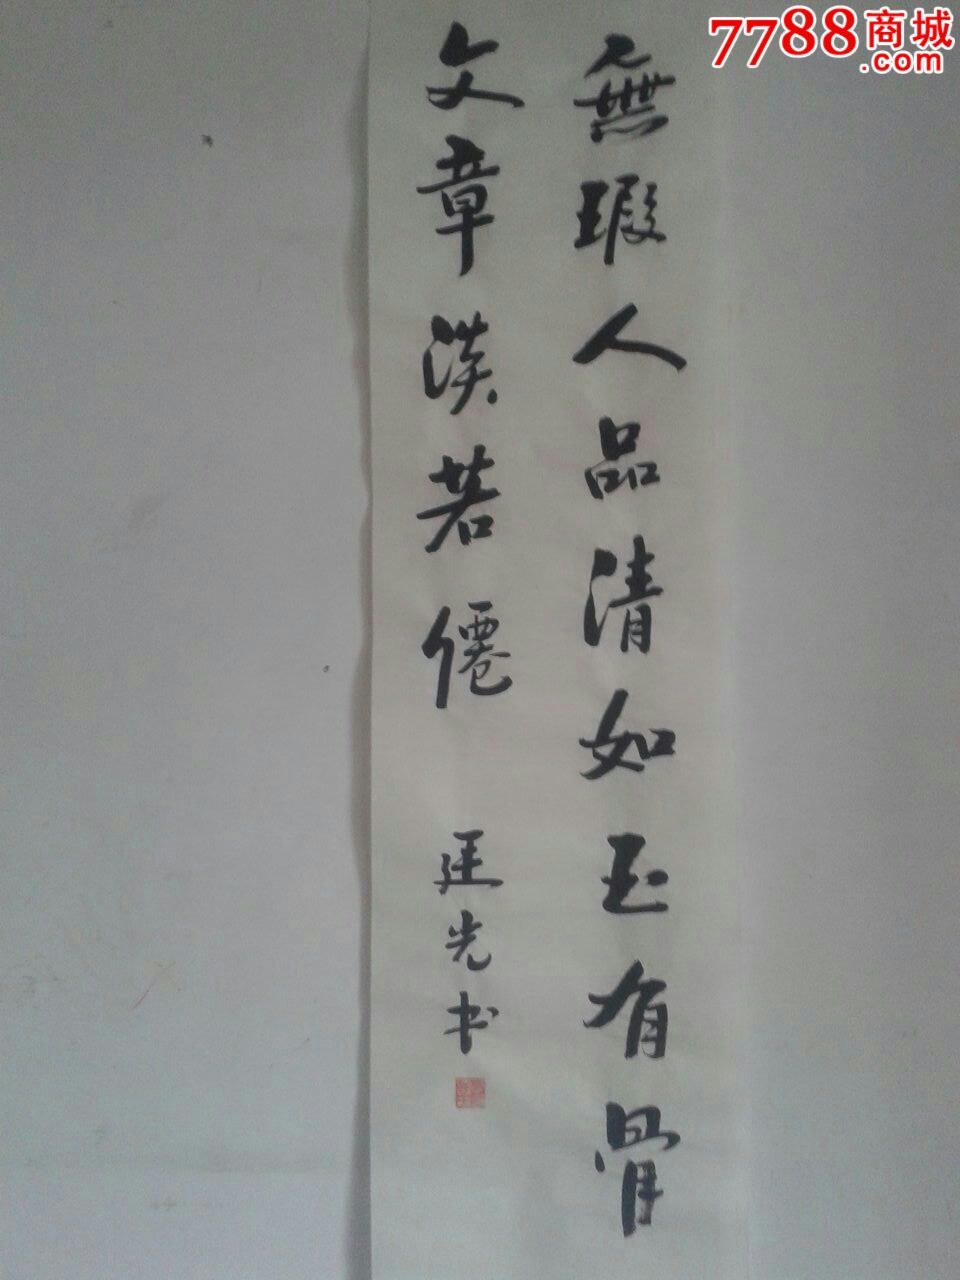 7788商城
.com
無瑕人品清如玉有骨
文章淡若僊
廷光书